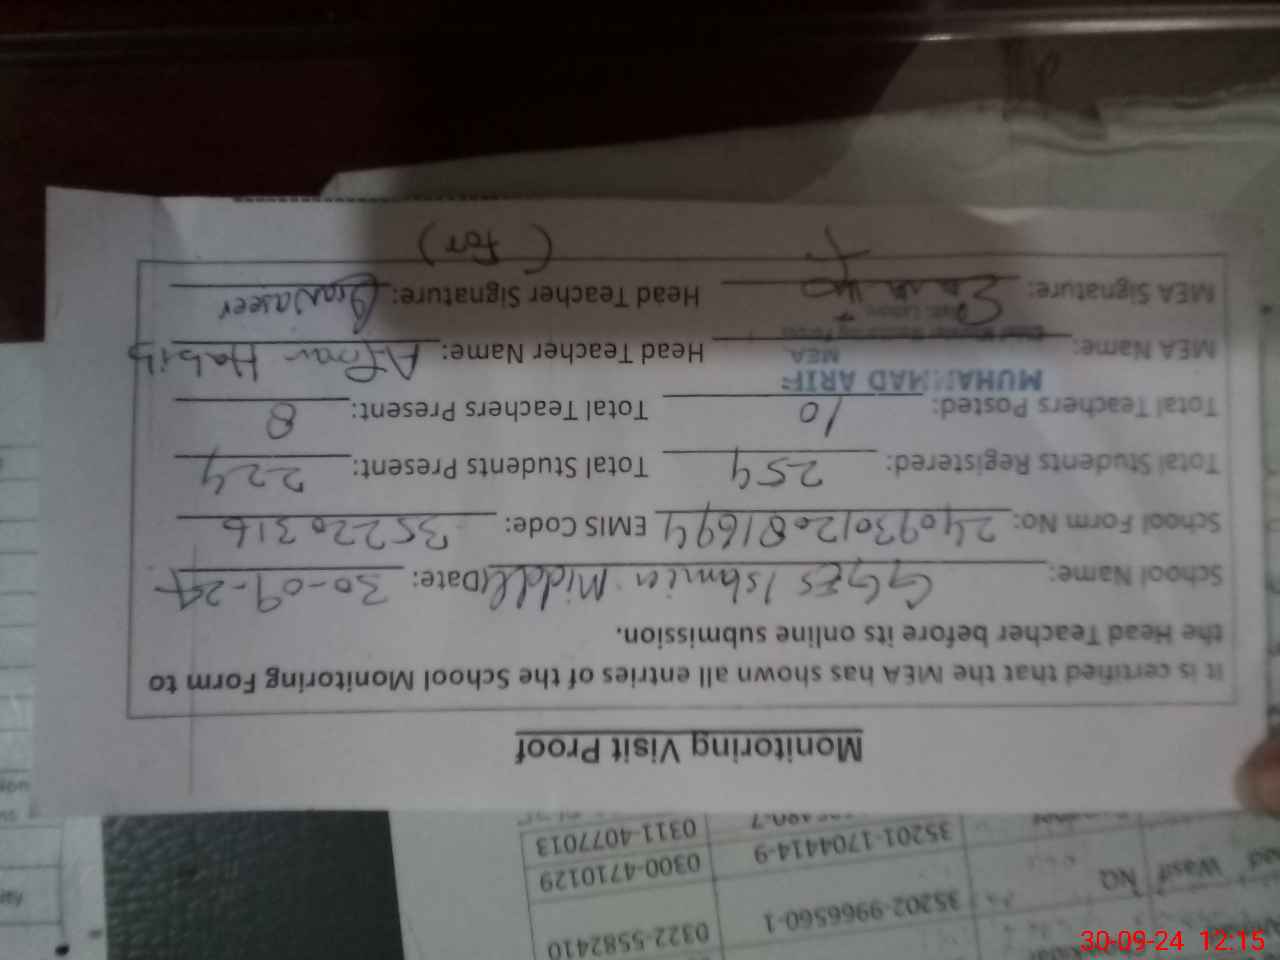 Monitoring Visit Proof
It is certified that the MEA has shown all entries of the School Monitoring Form to
the Head Teacher before its online submission.
School Name: GGES Islamia Middle Date: 30-09-24
School Form No: 2409301208 1694 EMIS Code: 35220316
Total Students Registered: 254 Total Students Present: 224
Total Teachers Posted: 10 Total Teachers Present: 8
MUHAMMAD ARIF
MEA
MEA Name: Head Teacher Name: Habib
MEA Signature: Head Teacher Signature:
(for)
0311-4077013
35201-1704414-9 0300-4710129
Wasif NQ
35202-9966560-1 0322-5582410
30-09-24 12:15